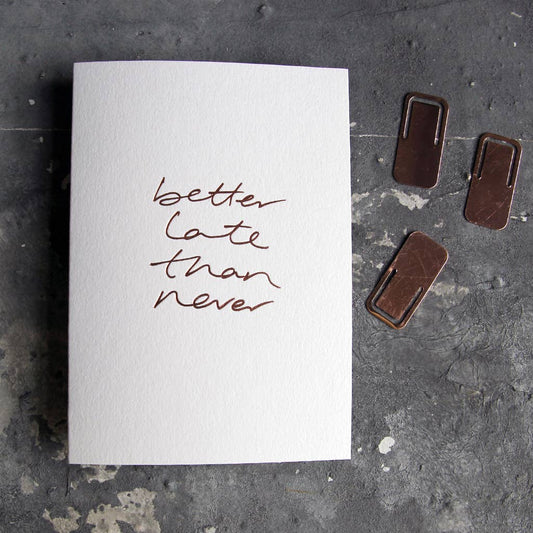 better
late
than
never